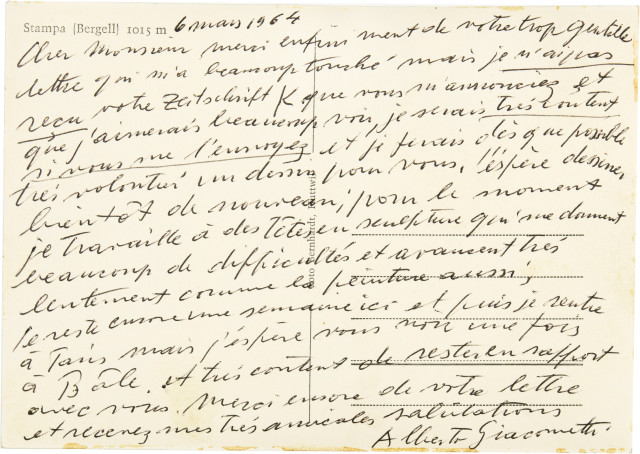 Stampa (Bergell) 1015 m 6 mars 1964
Cher Monsieur merci enfiniment de votre trop gentille
lettre qui m'a beaucoup touché mais je n'ai pas
reçu votre Zeitschrift K que vous m'annoncez et
que j'aimerais beaucoup voir, je serais très content
si vous me l'envoyez et je ferais dès que possible
très volontié un dessin pour vous, j'éspère dessiner
bientôt de nouveau, pour le moment
je travaille à des têtes en sculpture qui me donnent
beaucoup de difficultés et avancent très
lentement comme la peinture aussi,
Je reste encore une semaine ici et puis je rentre
à Paris mais j'éspère vous voir une fois
à Bâle, et très content de rester en rapport
avec vous. Merci encore de votre lettre
et recevez mes très amicales salutations
Alberto Giacometti